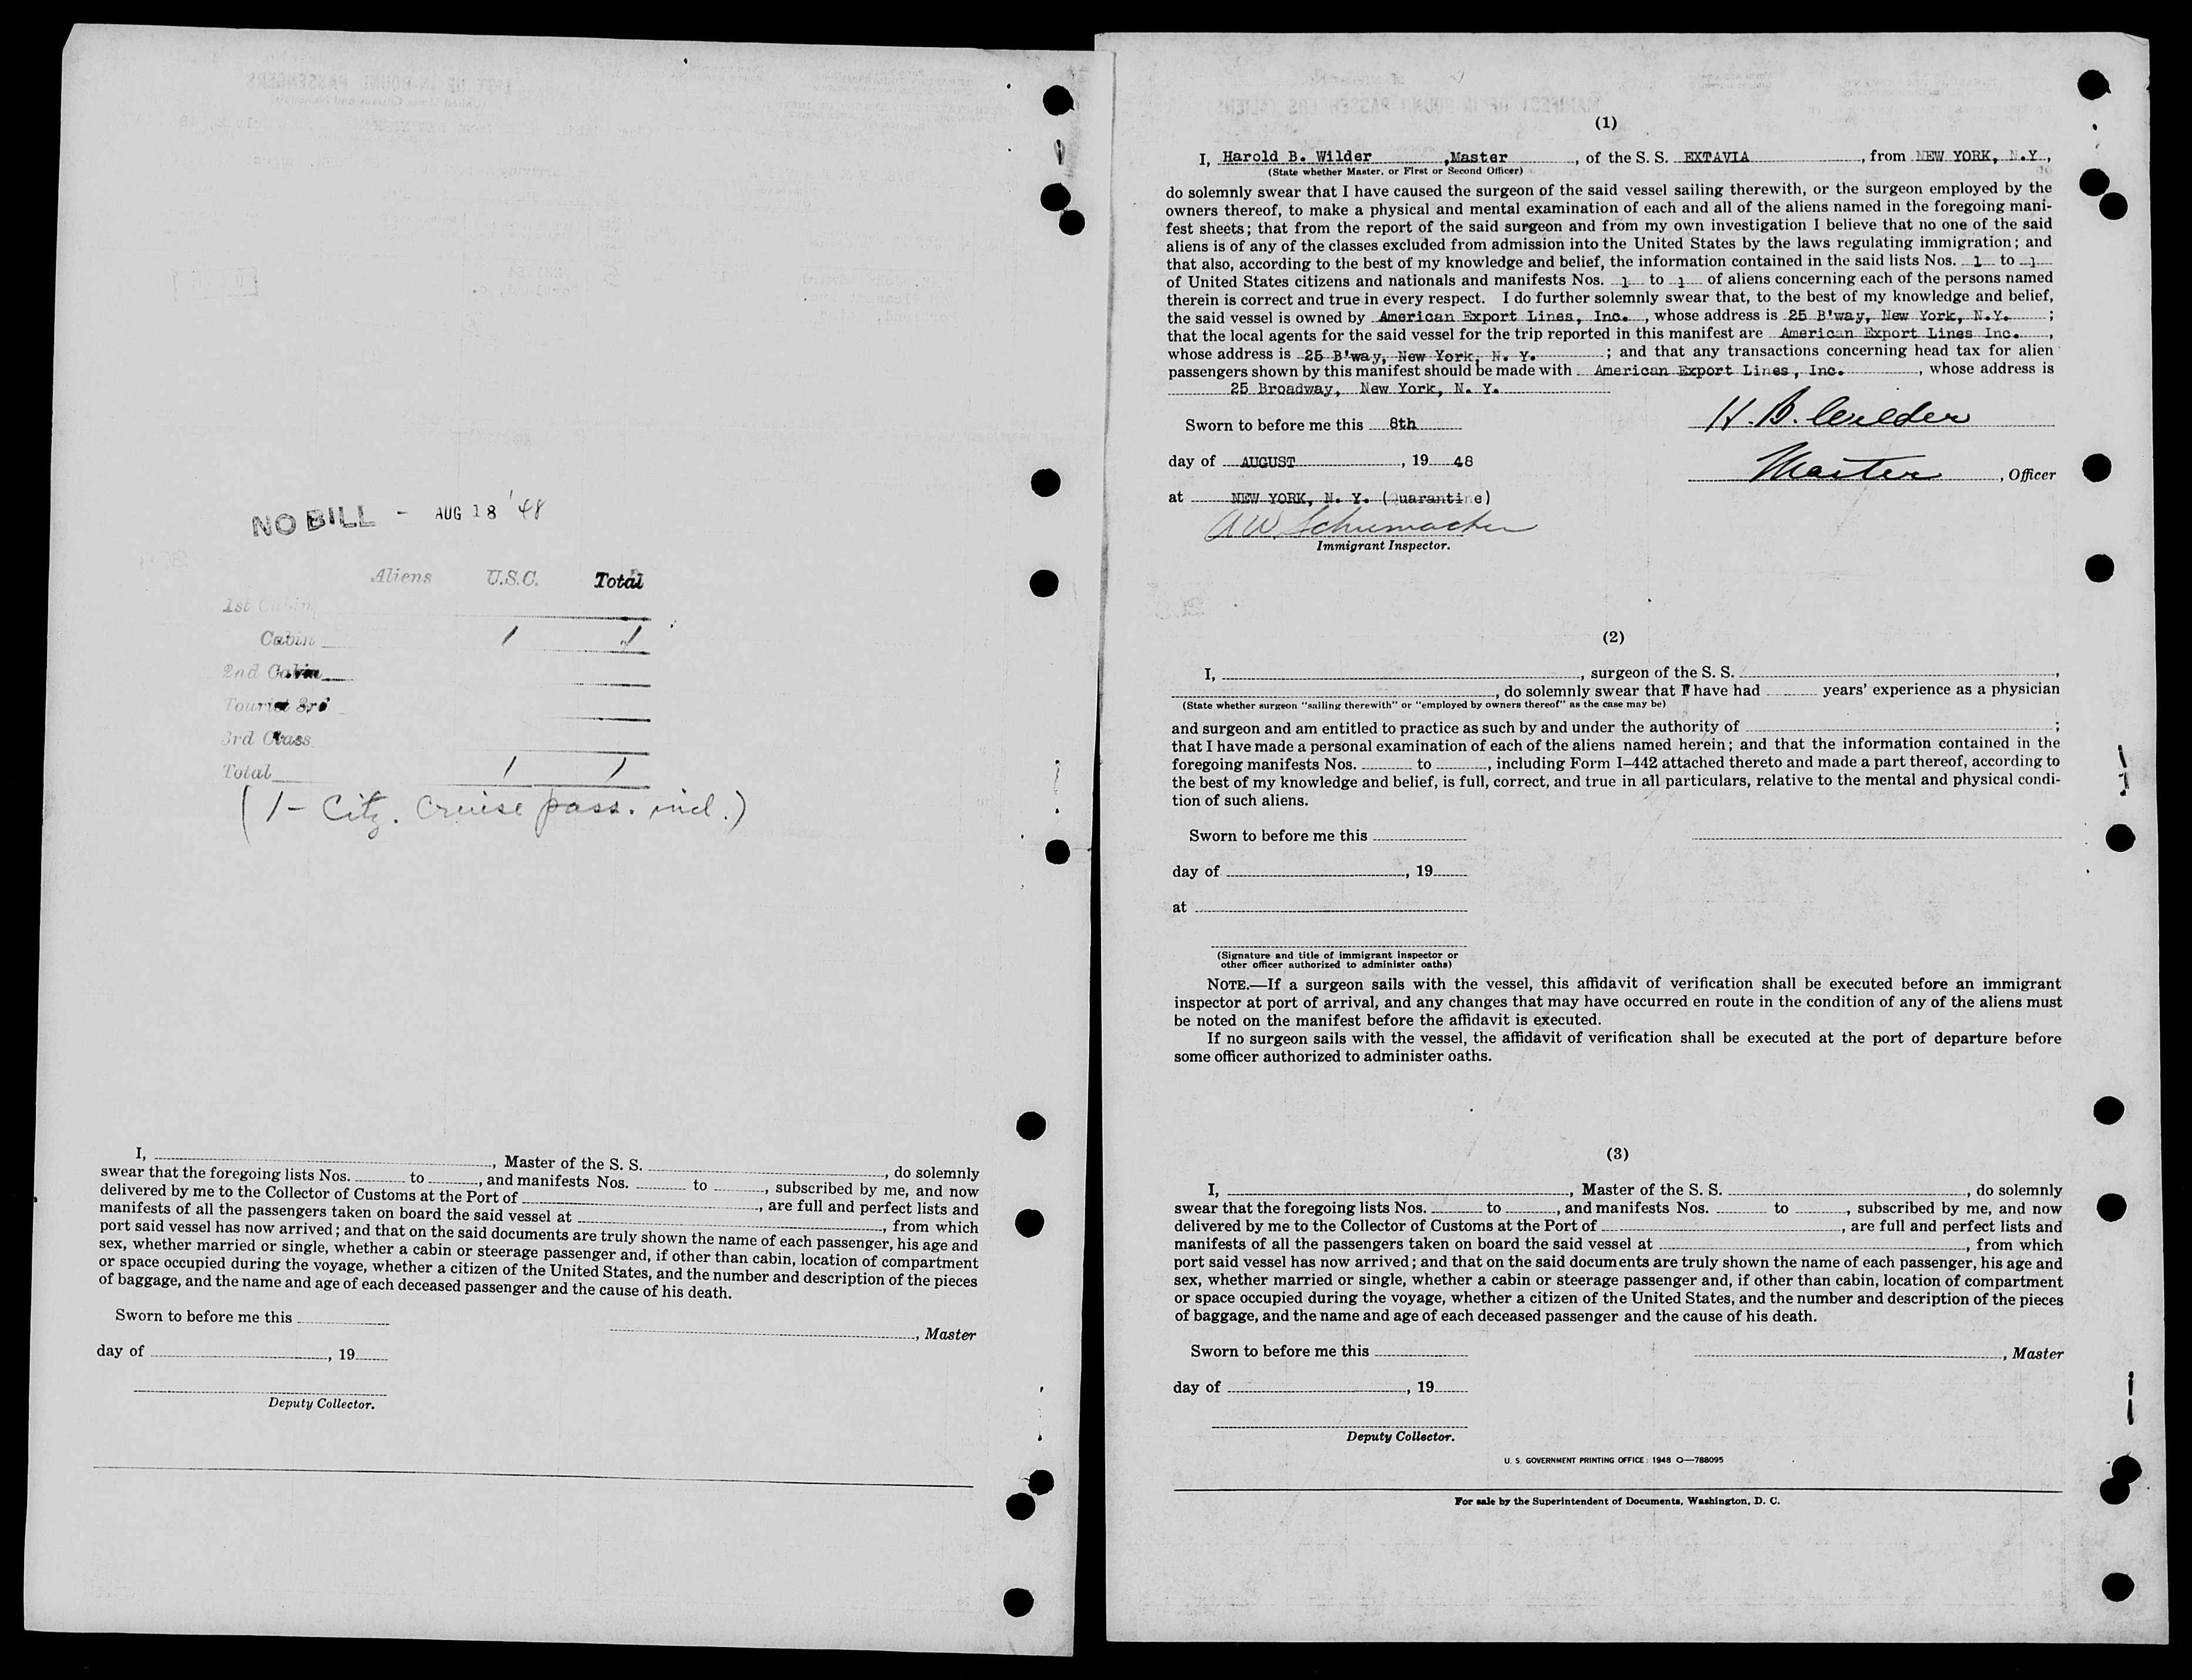 NO BILL - AUG 18 '48
Aliens U.S.C. Total
1st Cabin
Cabin 1 1
2nd Cabin
Tourist 3rd
3rd Class
Total 1 1
(1- Citz. Cruise pass. incl.)
I, , Master of the S. S. , do solemnly
swear that the foregoing lists Nos. to , and manifests Nos. to , subscribed by me, and now
delivered by me to the Collector of Customs at the Port of , are full and perfect lists and
manifests of all the passengers taken on board the said vessel at , from which
port said vessel has now arrived; and that on the said documents are truly shown the name of each passenger, his age and
sex, whether married or single, whether a cabin or steerage passenger and, if other than cabin, location of compartment
or space occupied during the voyage, whether a citizen of the United States, and the number and description of the pieces
of baggage, and the name and age of each deceased passenger and the cause of his death.
Sworn to before me this
, Master
day of , 19
Deputy Collector.
(1)
I, Harold B. Wilder ,Master , of the S. S. EXTAVIA , from NEW YORK, N.Y.,
(State whether Master, or First or Second Officer)
do solemnly swear that I have caused the surgeon of the said vessel sailing therewith, or the surgeon employed by the
owners thereof, to make a physical and mental examination of each and all of the aliens named in the foregoing mani-
fest sheets; that from the report of the said surgeon and from my own investigation I believe that no one of the said
aliens is of any of the classes excluded from admission into the United States by the laws regulating immigration; and
that also, according to the best of my knowledge and belief, the information contained in the said lists Nos. 1 to 1
of United States citizens and nationals and manifests Nos. 1 to 1 of aliens concerning each of the persons named
therein is correct and true in every respect. I do further solemnly swear that, to the best of my knowledge and belief,
the said vessel is owned by American Export Lines, Inc. , whose address is 25 B'way, New York, N.Y. ;
that the local agents for the said vessel for the trip reported in this manifest are American Export Lines Inc. ,
whose address is 25 B'way, New York, N. Y. ; and that any transactions concerning head tax for alien
passengers shown by this manifest should be made with American Export Lines, Inc. , whose address is
25 Broadway, New York, N. Y.
Sworn to before me this 8th
H. B. Wilder
day of AUGUST , 19 48
Master , Officer
at NEW YORK, N. Y. (Quarantine)
A W Schumacher
Immigrant Inspector.
(2)
I, , surgeon of the S. S. ,
, do solemnly swear that I have had years' experience as a physician
(State whether surgeon "sailing therewith" or "employed by owners thereof" as the case may be)
and surgeon and am entitled to practice as such by and under the authority of ;
that I have made a personal examination of each of the aliens named herein; and that the information contained in the
foregoing manifests Nos. to , including Form I-442 attached thereto and made a part thereof, according to
the best of my knowledge and belief, is full, correct, and true in all particulars, relative to the mental and physical condi-
tion of such aliens.
Sworn to before me this
day of , 19
at
(Signature and title of immigrant inspector or
other officer authorized to administer oaths)
NOTE.—If a surgeon sails with the vessel, this affidavit of verification shall be executed before an immigrant
inspector at port of arrival, and any changes that may have occurred en route in the condition of any of the aliens must
be noted on the manifest before the affidavit is executed.
If no surgeon sails with the vessel, the affidavit of verification shall be executed at the port of departure before
some officer authorized to administer oaths.
(3)
I, , Master of the S. S. , do solemnly
swear that the foregoing lists Nos. to , and manifests Nos. to , subscribed by me, and now
delivered by me to the Collector of Customs at the Port of , are full and perfect lists and
manifests of all the passengers taken on board the said vessel at , from which
port said vessel has now arrived; and that on the said documents are truly shown the name of each passenger, his age and
sex, whether married or single, whether a cabin or steerage passenger and, if other than cabin, location of compartment
or space occupied during the voyage, whether a citizen of the United States, and the number and description of the pieces
of baggage, and the name and age of each deceased passenger and the cause of his death.
Sworn to before me this
, Master
day of , 19
Deputy Collector.
U. S. GOVERNMENT PRINTING OFFICE: 1948 O—788095
For sale by the Superintendent of Documents, Washington, D. C.